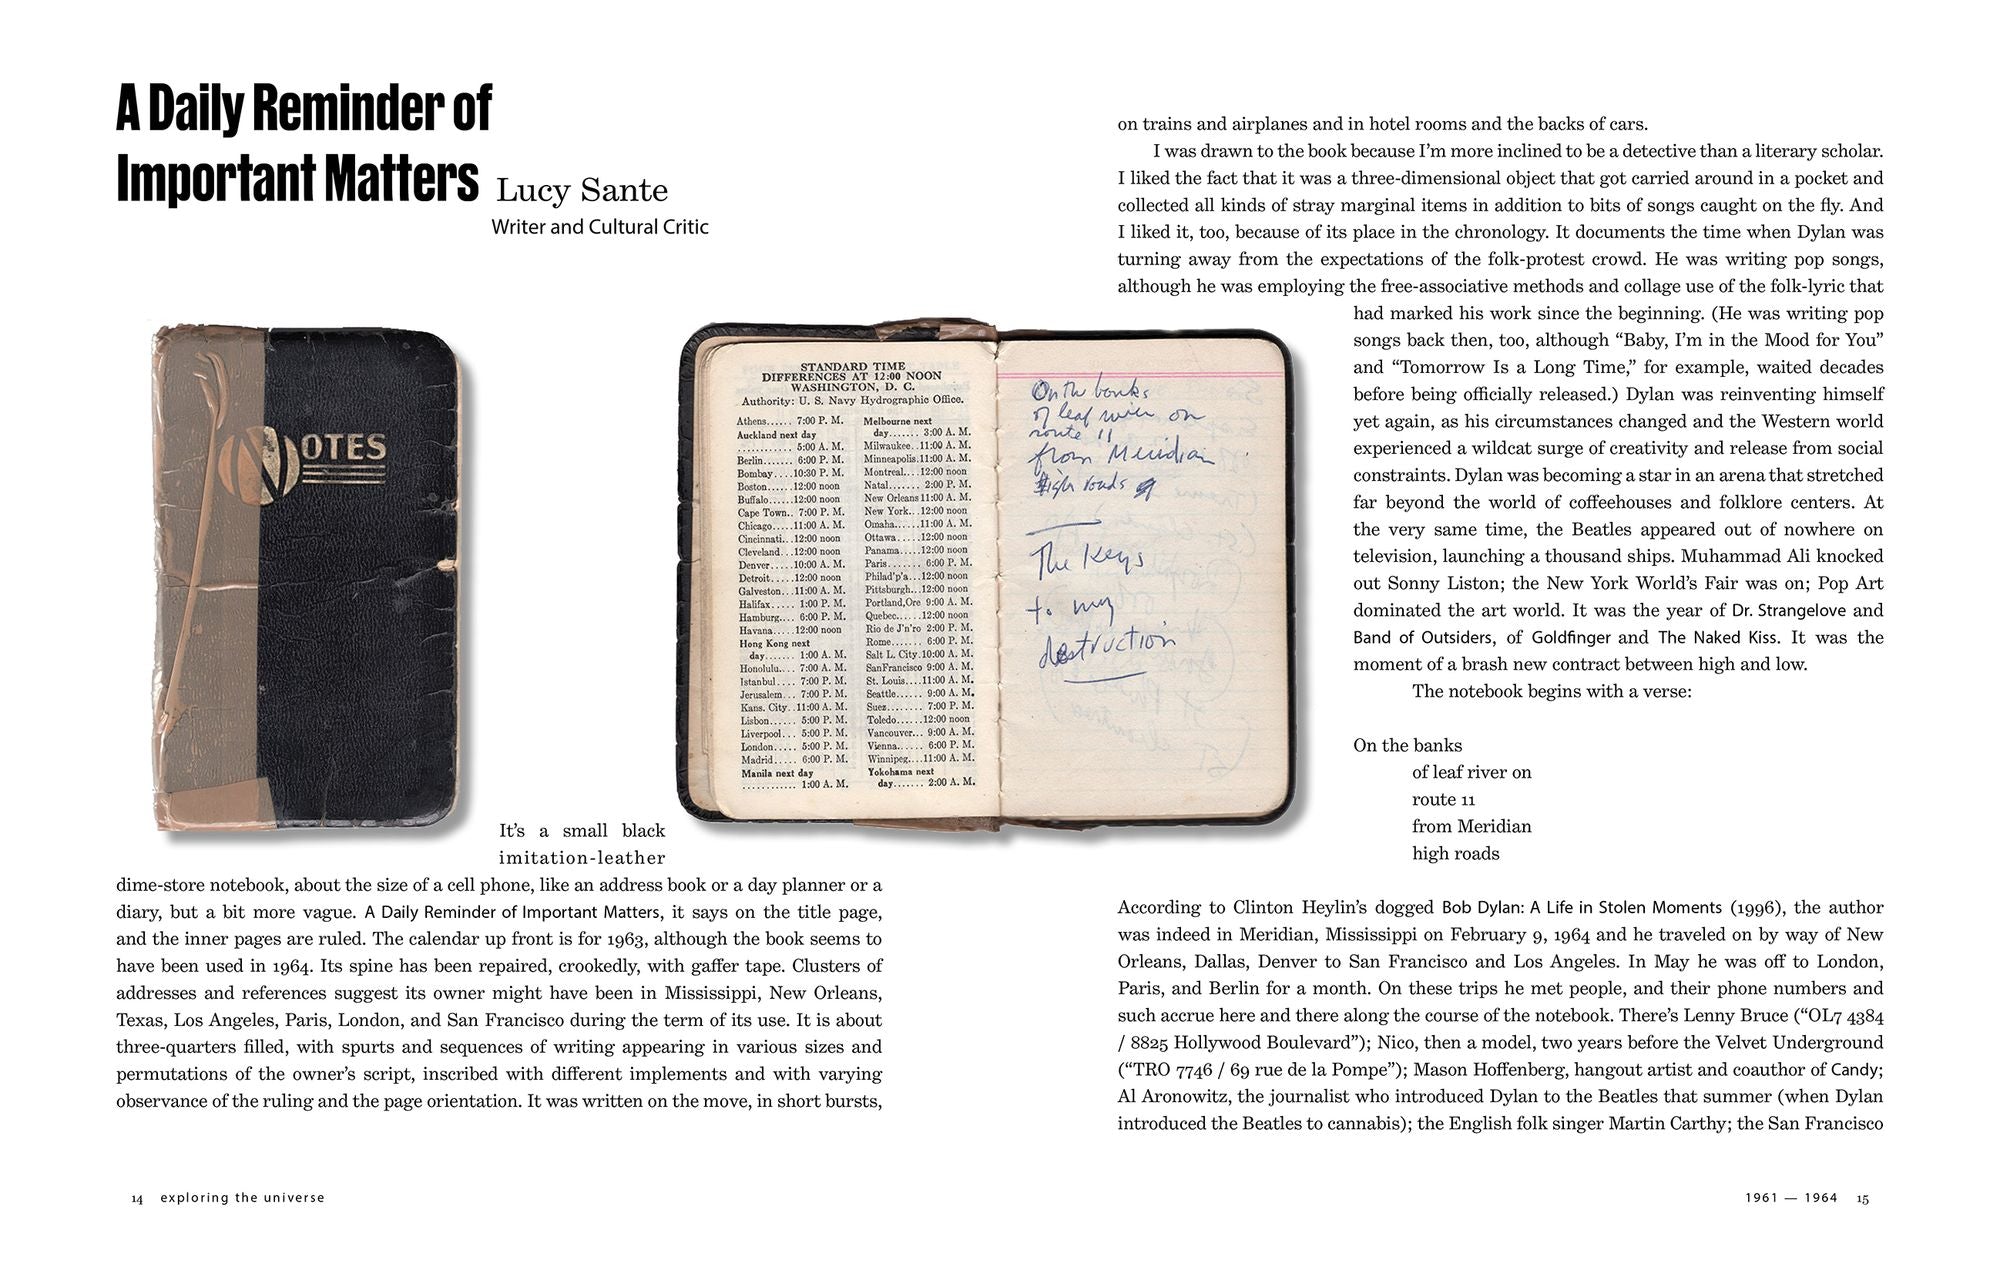 A Daily Reminder of
Important Matters Lucy Sante
Writer and Cultural Critic
NOTES
It’s a small black
imitation-leather
dime-store notebook, about the size of a cell phone, like an address book or a day planner or a
diary, but a bit more vague. A Daily Reminder of Important Matters, it says on the title page,
and the inner pages are ruled. The calendar up front is for 1963, although the book seems to
have been used in 1964. Its spine has been repaired, crookedly, with gaffer tape. Clusters of
addresses and references suggest its owner might have been in Mississippi, New Orleans,
Texas, Los Angeles, Paris, London, and San Francisco during the term of its use. It is about
three-quarters filled, with spurts and sequences of writing appearing in various sizes and
permutations of the owner’s script, inscribed with different implements and with varying
observance of the ruling and the page orientation. It was written on the move, in short bursts,
14 exploring the universe
STANDARD TIME
DIFFERENCES AT 12:00 NOON
WASHINGTON, D. C.
Authority: U. S. Navy Hydrographic Office.
Athens...... 7:00 P. M.
Auckland next day
............ 5:00 A. M.
Berlin....... 6:00 P. M.
Bombay.....10:30 P. M.
Boston......12:00 noon
Buffalo......12:00 noon
Cape Town.. 7:00 P. M.
Chicago.....11:00 A. M.
Cincinnati...12:00 noon
Cleveland...12:00 noon
Denver.....10:00 A. M.
Detroit......12:00 noon
Galveston...11:00 A. M.
Halifax..... 1:00 P. M.
Hamburg.... 6:00 P. M.
Havana.....12:00 noon
Hong Kong next
day....... 1:00 A. M.
Honolulu.... 7:00 A. M.
Istanbul.... 7:00 P. M.
Jerusalem... 7:00 P. M.
Kans. City..11:00 A. M.
Lisbon...... 5:00 P. M.
Liverpool... 5:00 P. M.
London..... 5:00 P. M.
Madrid..... 6:00 P. M.
Manila next day
............ 1:00 A. M.
Melbourne next
day....... 3:00 A. M.
Milwaukee..11:00 A. M.
Minneapolis.11:00 A. M.
Montreal....12:00 noon
Natal....... 2:00 P. M.
New Orleans 11:00 A. M.
New York...12:00 noon
Omaha......11:00 A. M.
Ottawa.....12:00 noon
Panama.....12:00 noon
Paris....... 6:00 P. M.
Philad'p'a...12:00 noon
Pittsburgh...12:00 noon
Portland,Ore 9:00 A. M.
Quebec......12:00 noon
Rio de J'n'ro 2:00 P. M.
Rome....... 6:00 P. M.
Salt L. City.10:00 A. M.
SanFrancisco 9:00 A. M.
St. Louis....11:00 A. M.
Seattle...... 9:00 A. M.
Suez........ 7:00 P. M.
Toledo......12:00 noon
Vancouver... 9:00 A. M.
Vienna...... 6:00 P. M.
Winnipeg....11:00 A. M.
Yokohama next
day....... 2:00 A. M.
On the banks
of leaf river on
route 11
from Meridian
high roads
The Keys
to my
destruction
on trains and airplanes and in hotel rooms and the backs of cars.
I was drawn to the book because I’m more inclined to be a detective than a literary scholar.
I liked the fact that it was a three-dimensional object that got carried around in a pocket and
collected all kinds of stray marginal items in addition to bits of songs caught on the fly. And
I liked it, too, because of its place in the chronology. It documents the time when Dylan was
turning away from the expectations of the folk-protest crowd. He was writing pop songs,
although he was employing the free-associative methods and collage use of the folk-lyric that
had marked his work since the beginning. (He was writing pop
songs back then, too, although “Baby, I’m in the Mood for You”
and “Tomorrow Is a Long Time,” for example, waited decades
before being officially released.) Dylan was reinventing himself
yet again, as his circumstances changed and the Western world
experienced a wildcat surge of creativity and release from social
constraints. Dylan was becoming a star in an arena that stretched
far beyond the world of coffeehouses and folklore centers. At
the very same time, the Beatles appeared out of nowhere on
television, launching a thousand ships. Muhammad Ali knocked
out Sonny Liston; the New York World’s Fair was on; Pop Art
dominated the art world. It was the year of Dr. Strangelove and
Band of Outsiders, of Goldfinger and The Naked Kiss. It was the
moment of a brash new contract between high and low.
The notebook begins with a verse:
On the banks
of leaf river on
route 11
from Meridian
high roads
According to Clinton Heylin’s dogged Bob Dylan: A Life in Stolen Moments (1996), the author
was indeed in Meridian, Mississippi on February 9, 1964 and he traveled on by way of New
Orleans, Dallas, Denver to San Francisco and Los Angeles. In May he was off to London,
Paris, and Berlin for a month. On these trips he met people, and their phone numbers and
such accrue here and there along the course of the notebook. There’s Lenny Bruce (“OL7 4384
/ 8825 Hollywood Boulevard”); Nico, then a model, two years before the Velvet Underground
(“TRO 7746 / 69 rue de la Pompe”); Mason Hoffenberg, hangout artist and coauthor of Candy;
Al Aronowitz, the journalist who introduced Dylan to the Beatles that summer (when Dylan
introduced the Beatles to cannabis); the English folk singer Martin Carthy; the San Francisco
1961 — 1964 15